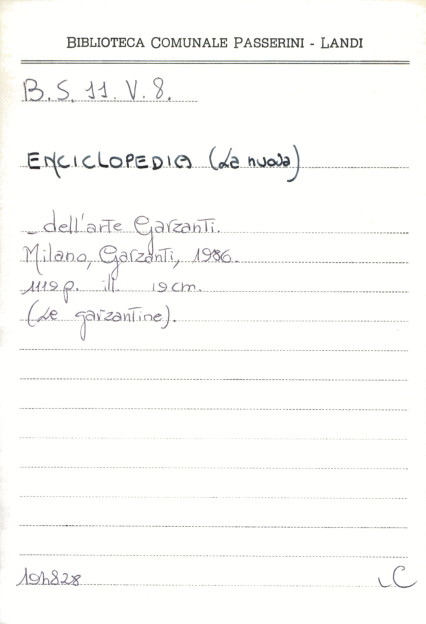 BIBLIOTECA COMUNALE PASSERINI - LANDI
B.S. 11. V. 8.
ENCICLOPEDIA (La nuova)
_ dell'arte Garzanti.
Milano, Garzanti, 1986.
1119 p. ill. 19 cm.
(Le garzantine).
194828
C